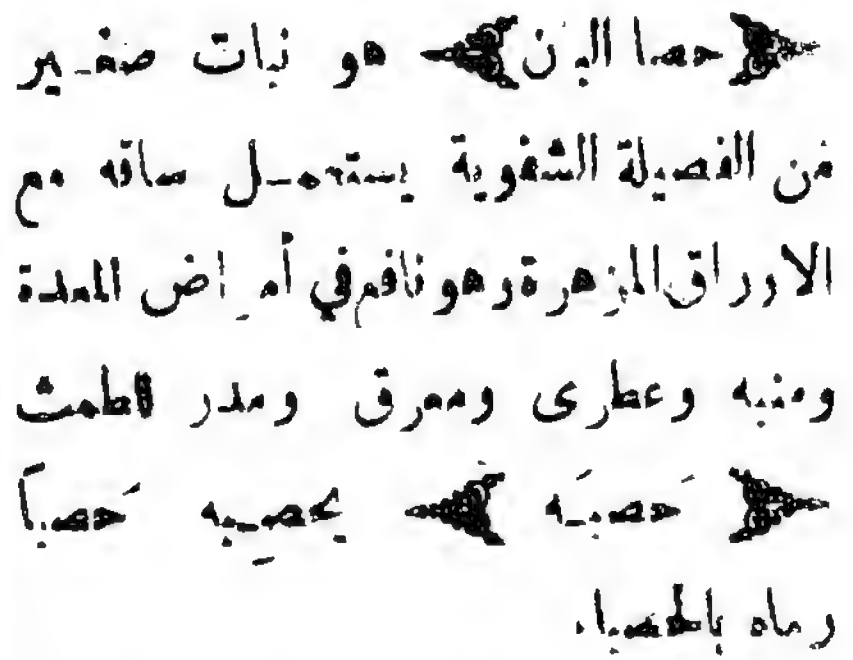 ﴿حصا البان﴾ هو نبات صغـير
من الفصيلة الشفوية يستعمـل ساقه مع
الاوراق المزهرة وهو نافع في أمراض المعدة
ومنبه وعطرى ومعرق ومدر للطمث
﴿حَصبَه﴾ يحصِبه حَصباً
رماه بالحصباء